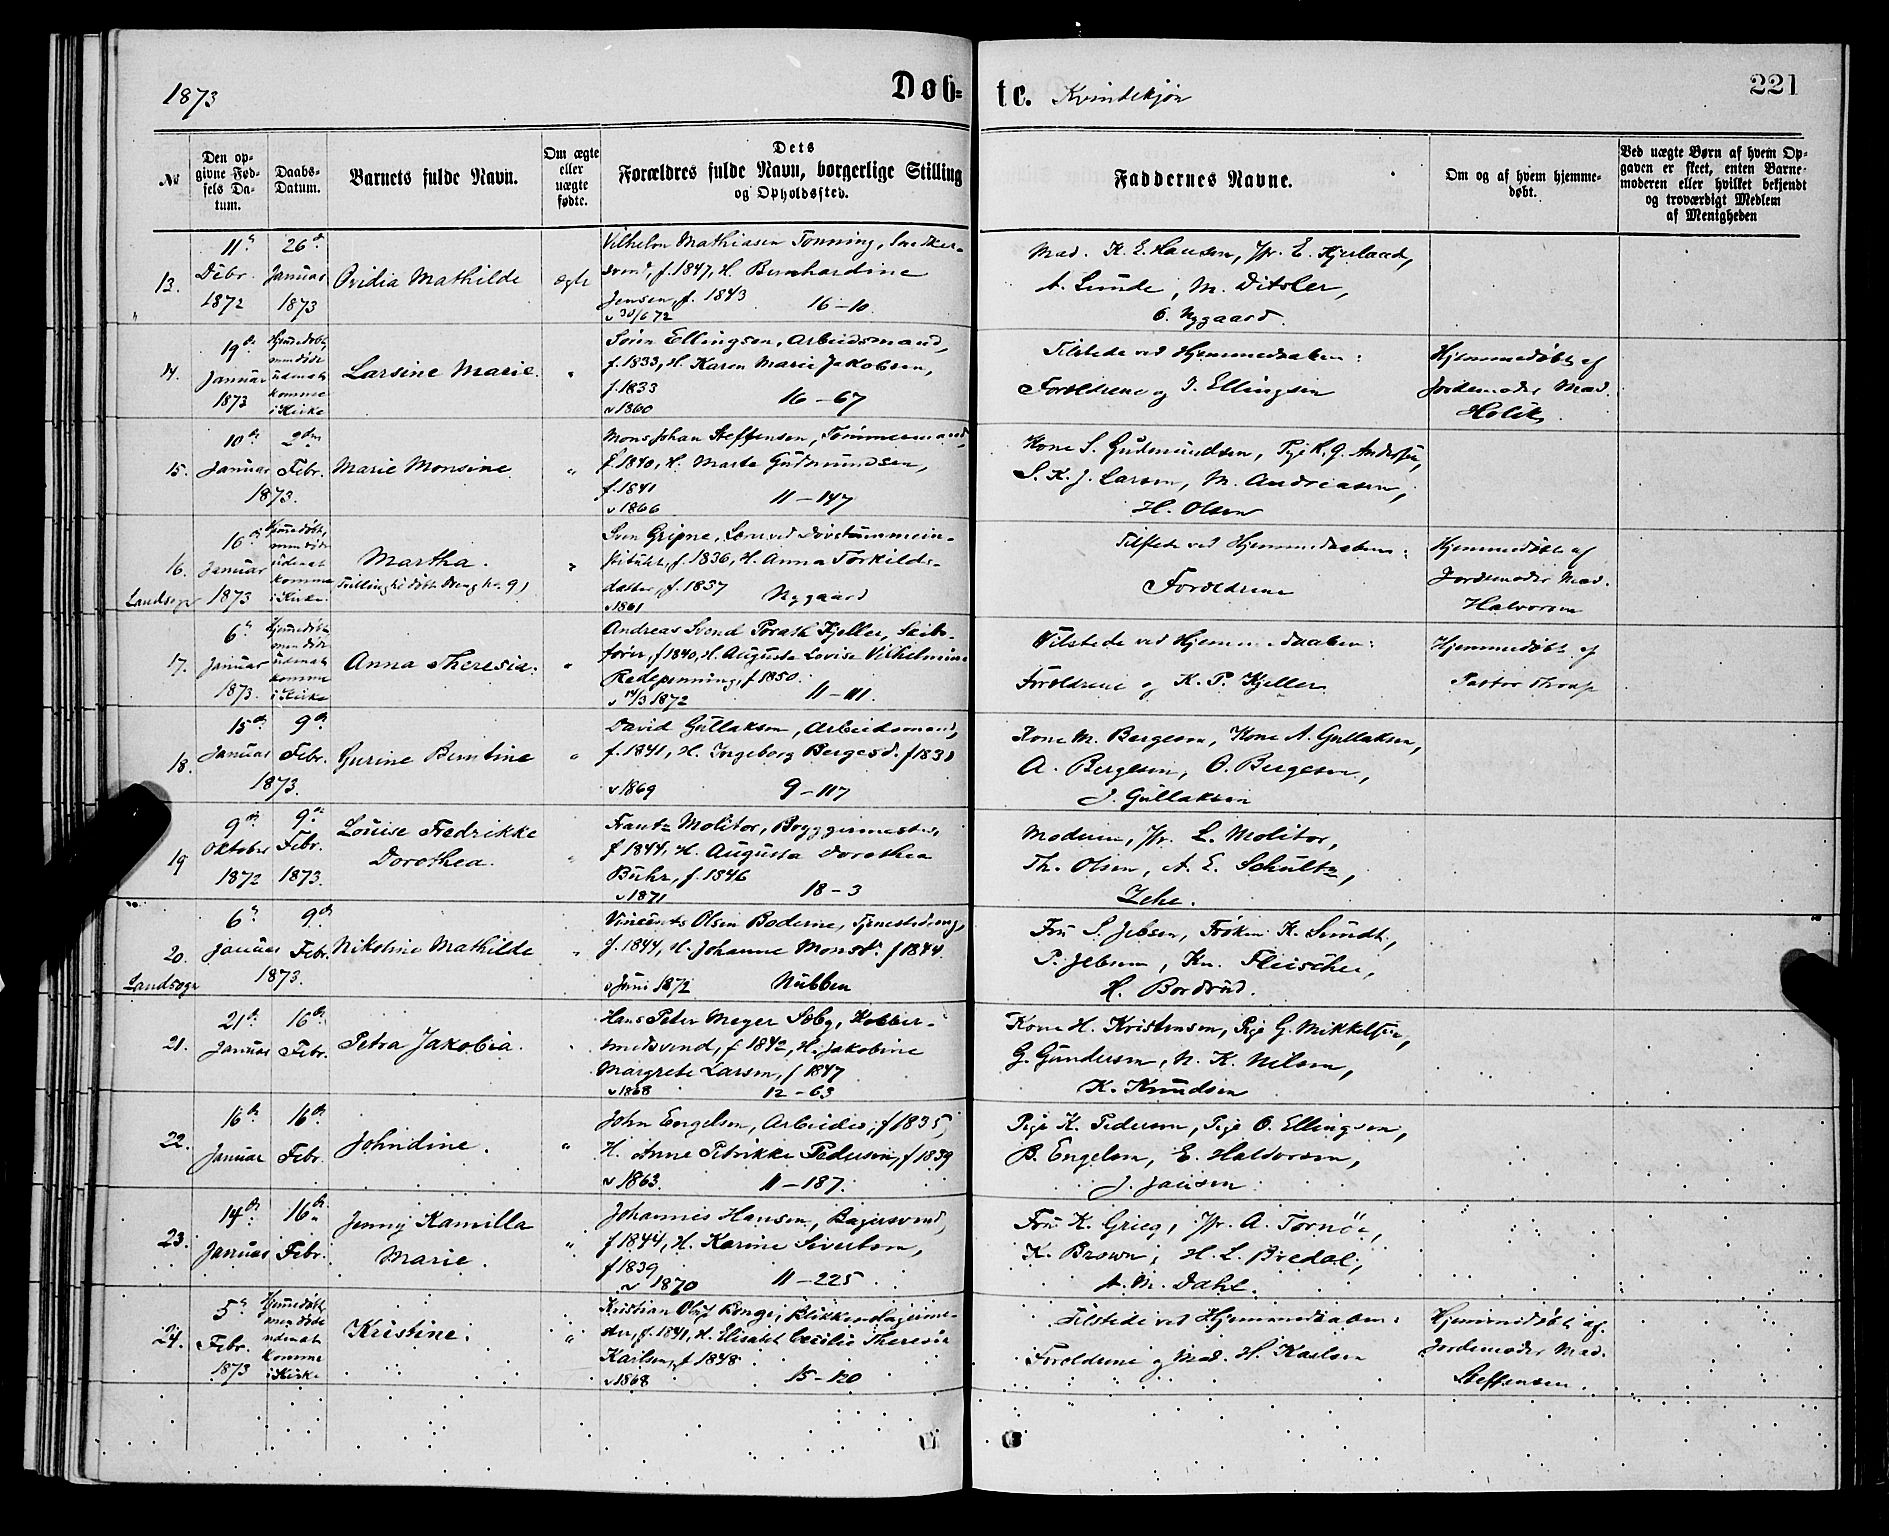 1873
Døb-
te. Kvindekjøn
221
No
Den op-
givne Fød-
sels Da-
tum.
Daabs-
Datum.
Barnets fulde Navn.
Om ægte
eller
uægte
fødte.
Dets
Forældres fulde Navn, borgerlige Stilling
og Opholdssted.
Faddernes Navne.
Om og af hvem hjemme-
døbt.
Ved uægte Børn af hvem Op-
gaven er skeet, enten Barne-
moderen eller hvilket bekjendt
og troværdigt Medlem
af Menigheden
13.
11te
Dcbr.
1872
26de
Januar
1873
Ovidia Mathilde
ægte
Vilhelm Mathiasen Tonning, Snedker-
svend, f. 1847, H. Bernhardine
Jensen, f. 1843 16-10.
v 30/6 72
Mad. K. E. Hansen, Jfr. E. Kjelaad,
A. Lunde, M. Ditsler,
O. Nygaard.
14.
19de
Januar
1873
Hjemmedøbt,
men døde
udenat
komme
i Kirke
Larsine Marie.
"
Søren Ellingsen, Arbeidsmand,
f. 1833, H. Karen Marie Jakobsen,
f. 1833 16-67
v 1860
Tilstede ved Hjemmedaaben:
Forældrene og I. Ellingsen
Hjemmedøbt af
Jordemoder Mad.
Holck
15.
10de
Januar
2den
Febr.
1873.
Marie Monsine
"
Mons Johan Steffensen, Tømmermand,
f. 1840, H. Marta Gudmundsen,
f. 1841 11-147
v 1866
Kone S. Gudmundsen, Pige R. G. Andersen,
S. K. J. Larsen, M. Andreasen,
H. Olsen
16.
Landsogn
16de
Januar
1873
Hjemmedøbt,
men døde
udenat
komme
i Kirke.
Martha.
"
Sven Gripne, Lærer ved Døvstummein-
stitutet, f. 1836, H. Anna Torkilds-
datter, f. 1837 Nygaard
v 1861
Tilstede ved Hjemmedaaben:
Forældrene
Hjemmedøbt af
Jordemoder Mad.
Halvorsen
17.
6te
Januar
1873.
Hjemmedøbt
men døde
udenat
komme
i Kirke
Anna Theresia.
"
Andreas Svend Porath Kjeller, Skibs-
fører, f. 1840, H. Augusta Lovise Vilhelmine
Redepenning, f 1850.
v 14/3 1872 11-111.
Tilstede ved Hjemmedaaben:
Forældrene og K. P. Kjeller
Hjemmedøbt af
Pastor Thrap
18.
15de
Januar
9de
Febr.
1873.
Gurine Berntine
"
David Gullaksen, Arbeidsmand,
f. 1841, H. Ingeborg Bergesd. f 1831
v 1869 9-117
Kone M. Bergesen, Kone A. Gullaksen,
A. Bergesen, O. Bergesen,
J. Gullaksen
19
9de
Oktober
1872
9de
Febr.
1873.
Louise Fredrikke
Dorothea.
"
Frantz Molitor, Byggemester,
f 1844, H. Augusta Dorothea
Buhr, f. 1846 18-3
v 1871
Moderen, Jfr. L. Molitor,
Th. Olsen, A. E. Schultz,
Zehe.
20.
Landsogn
6te
Januar
9de
Febr.
1873.
Nikoline Mathilde
"
Vincents Olsen Boderne, Tjenestedreng,
f. 1844, H. Johanne Monsd. f 1844.
v Juni 1872 Nubben
Fru S. Jebsen, Frøken K. Sundt,
P. Jebsen, Kn. Fleischer,
H. Bordrud.
21.
21de
Januar
16de
Febr.
Petra Jakobia.
"
Hans Peter Meyer Soby, Kobber-
smedsvend, f 1842, H. Jakobine
Margrete Larsen, f 1847
v 1868 12-63
Kone H. Kristensen, Pige G. Mikkelsen,
G. Gundersen, N. K. Nilsen,
K. Knudsen
22.
16de
Januar
16de
Febr.
Johndine.
"
John Engelsen, Arbeider, f 1835,
H. Anne Petrikke Pedersen, f 1839
v 1863. 11-187.
Pige K. Pedersen, Pige O. Ellingsen,
B. Engelsen, E. Halvorsen,
J. Jansen
23.
14de
Januar
16de
Febr.
Jenny Kamilla
Marie.
"
Johannes Hansen, Bagersvend,
f 1844, H. Karine Sivertsen,
f 1839
v 1870 11-225
Fru K. Grieg, Jfr. A. Tornöe,
K. Brown, H. L. Bredal,
A. M. Dahl.
24.
5te
Febr.
1873
Hjemmedøbt
men døde
udenat
komme
i Kirke
Kristine.
"
Kristian Oluf Bonge, Blikkenslagerme-
ster, f. 1841, H. Elisabet Cecilie Theresie
Karlsen, f 1848
v 1868 15-120
Tilstede ved Hjemmedaaben:
Forældrene og Mad. H. Karlsen
Hjemmedøbt af
Jordemoder Mad.
Steffensen.